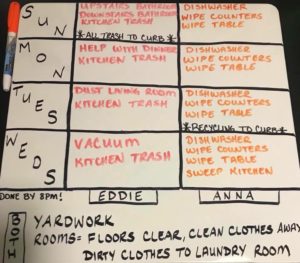 SUN
UPSTAIRS BATHROOM
DOWNSTAIRS BATHROOM
KITCHEN TRASH
DISHWASHER
WIPE COUNTERS
WIPE TABLE
*ALL TRASH TO CURB*
MON
HELP WITH DINNER
KITCHEN TRASH
DISHWASHER
WIPE COUNTERS
WIPE TABLE
TUES
DUST LIVING ROOM
KITCHEN TRASH
DISHWASHER
WIPE COUNTERS
WIPE TABLE
*RECYCLING TO CURB*
WEDS
VACUUM
KITCHEN TRASH
DISHWASHER
WIPE COUNTERS
WIPE TABLE
SWEEP KITCHEN
DONE BY 8PM!
EDDIE
ANNA
BOTH
YARDWORK
ROOMS= FLOORS CLEAR, CLEAN CLOTHES AWAY
DIRTY CLOTHES TO LAUNDRY ROOM